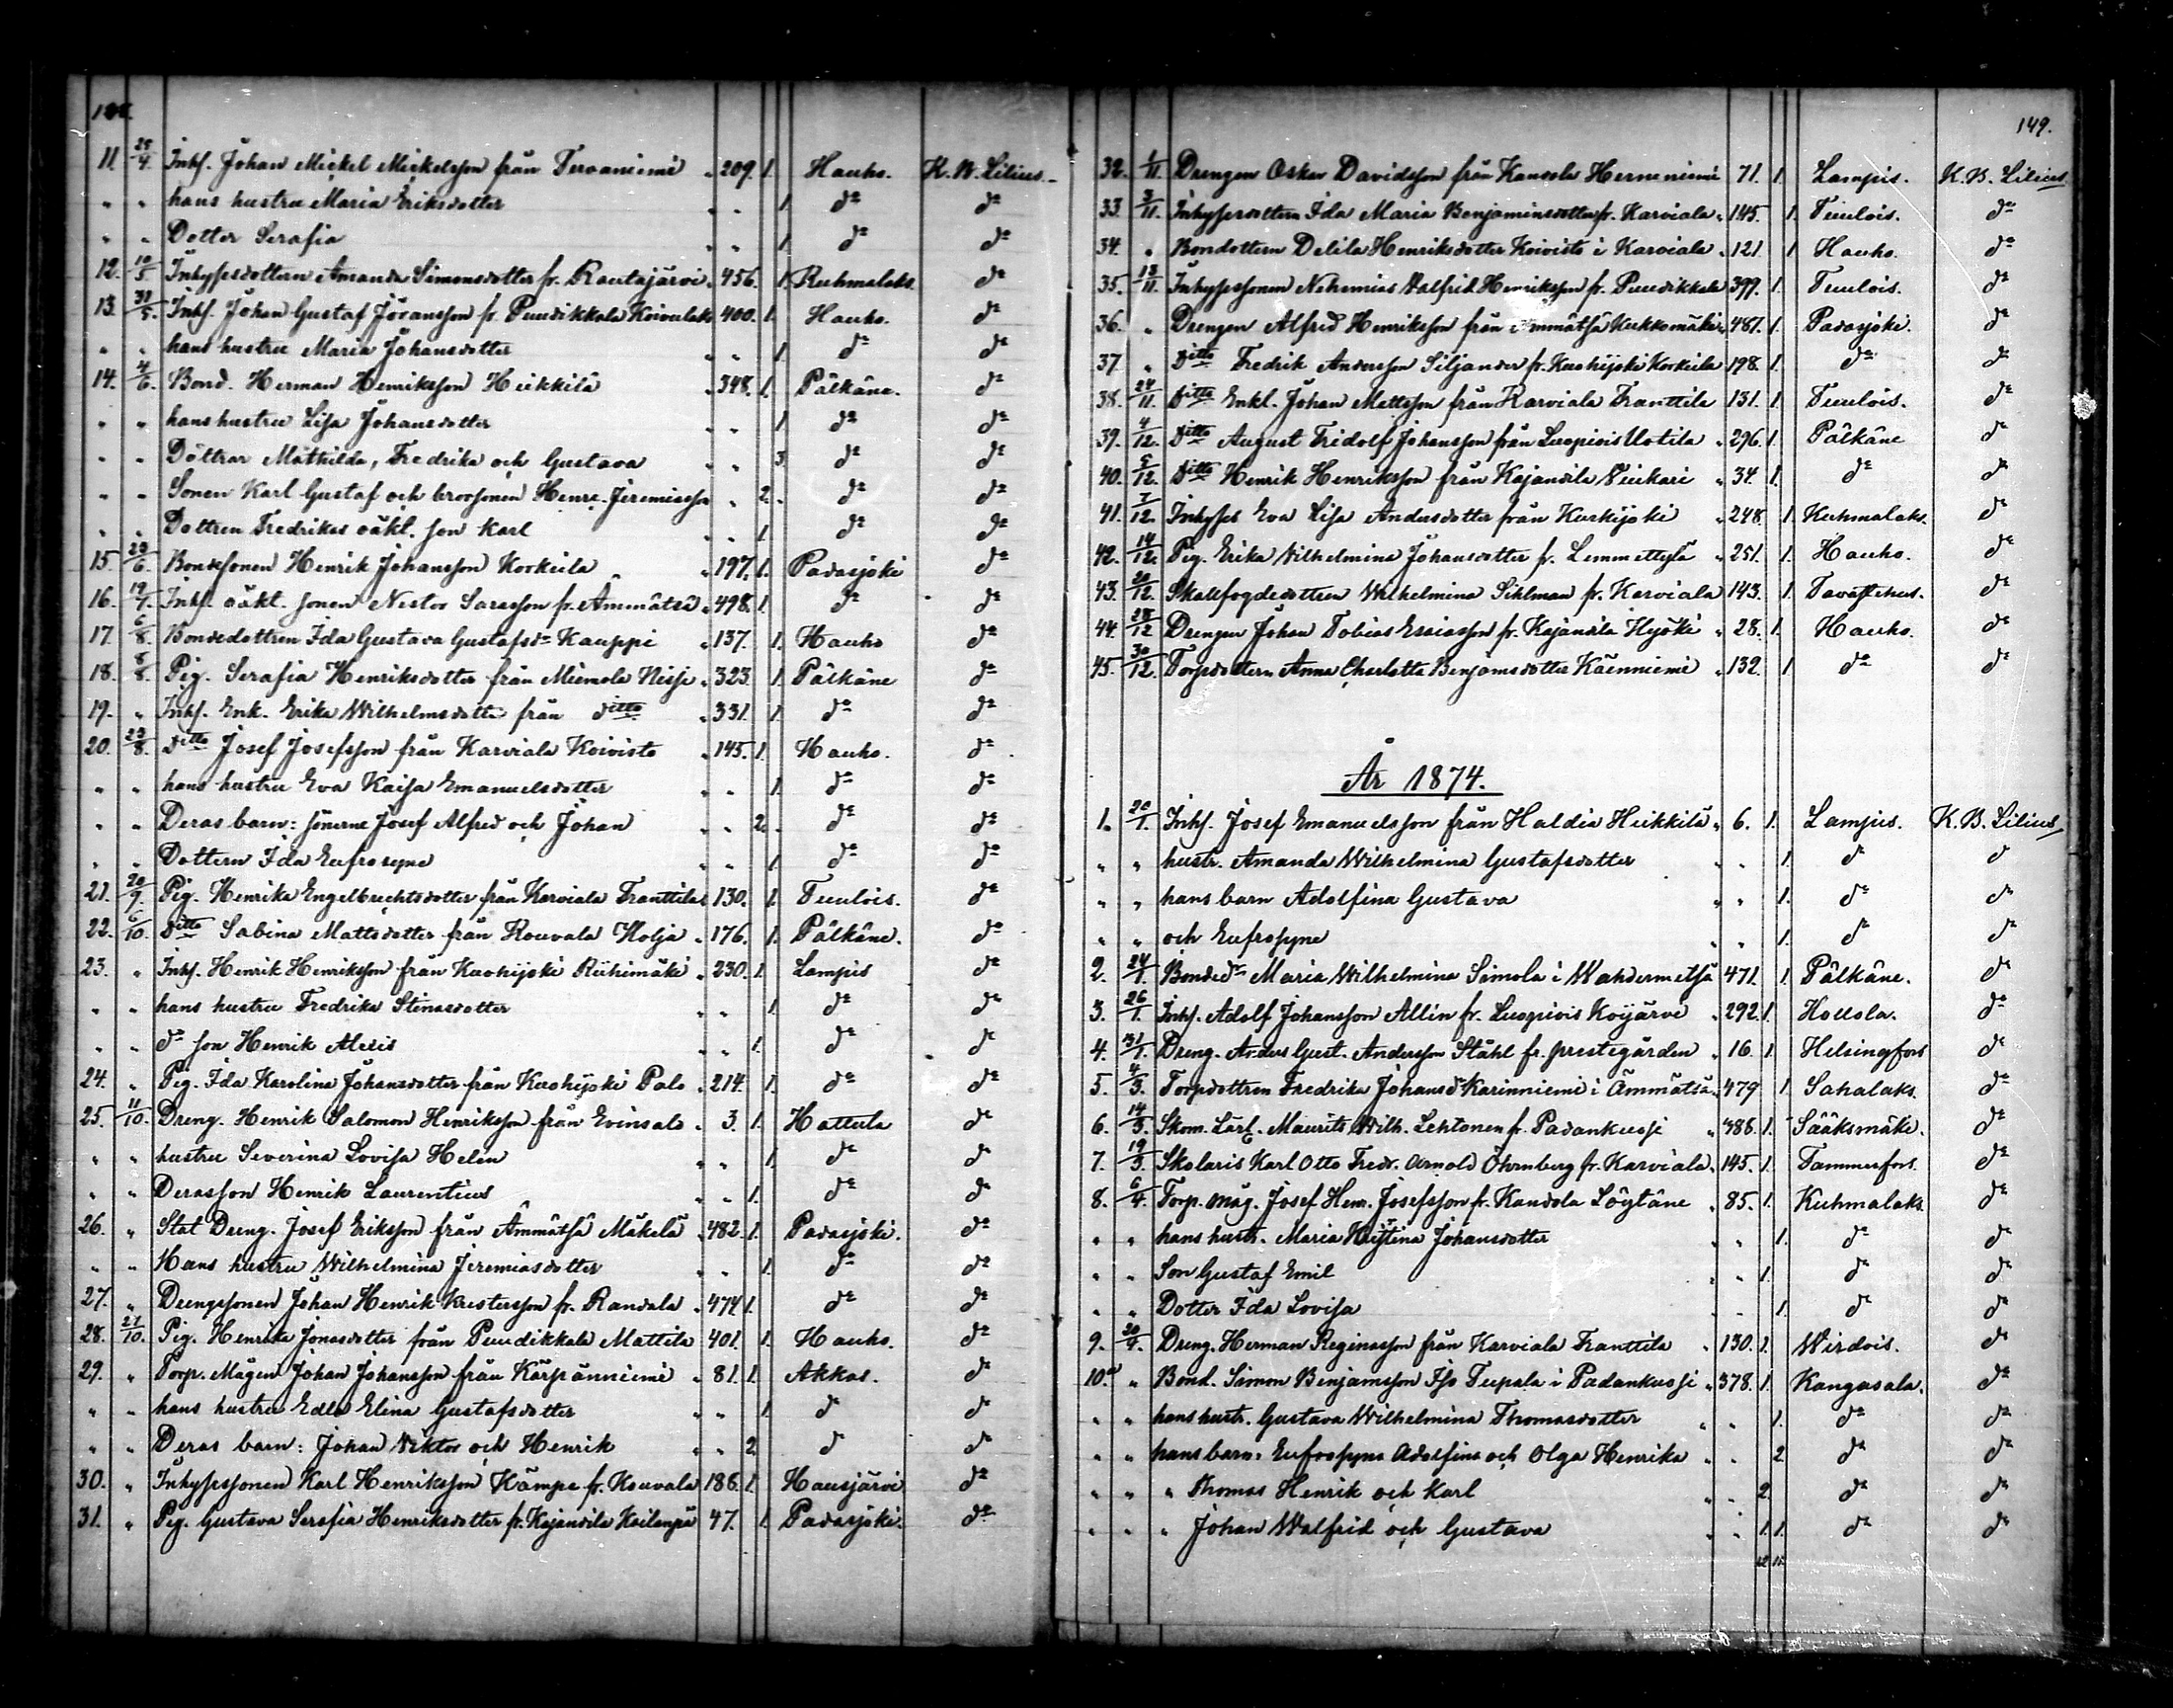 148.
11. 25/4. Inhs. Johan Mickel Mickelsson från Tervaniemi „ 209. 1. Hauho. K. B. Lilius.
„ „ hans hustru Maria Eriksdotter „ „ 1. do do
„ „ Dotter Serafia „ „ 1. do do
12. 10/5 Inhysesdottern Amanda Simonsdotter fr. Rautajärvi „ 456. 1. Kuhmalaks. do
13. 31/5. Inhs. Johan Gustaf Göransson fr. Puudikkala Koivulaks 400. 1. Hauho. do
„ „ hans hustru Maria Johansdotter „ „ 1. do do
14. 4/6. Bond. Herman Henriksson Heikkilä „ 348. 1. Pälkäne. do
„ „ hans hustru Lisa Johansdotter „ „ 1 do do
„ „ Döttrar Mathilda, Fredrika och Gustava „ „ 3. do do
„ „ Sonen Karl Gustaf och brorsonen Henr. Jeremiasson „ 2. do do
„ „ Dottren Fredrikas oäkt. son Karl „ „ 1 do do
15. 23/6. Bondesonen Henrik Johansson Korkeila „ 197. 1. Padasjoki do
16. 19/7. Inhs. oäkt. sonen Nestor Sarasson fr. Ämmätsä „ 498. 1. do do
17. 6/8. Bondedottren Ida Gustava Gustafsdr Kauppi „ 137. 1. Hauho do
18. 8/8. Pig. Serafia Henriksdotter från Miemola Nisje „ 323. 1. Pälkäne do
19. „ Inhs. Enk. Erika Wilhelmsdotter från ditto „ 331. 1. do do
20. 23/8. ditto Josef Josefsson från Karviala Koivisto „ 145. 1. Hauho. do
„ „ hans hustru Eva Kaisa Emanuelsdotter „ „ 1. do do
„ „ Deras barn: sönerne Josef Alfred och Johan „ „ 2. do do
„ „ Dottern Ida Eufrosyne „ „ 1. do do
21. 20/9. Pig. Henrika Engelbrechtsdotter från Karviala Franttila 130. 1. Tuulois. do
22. 6/10. ditto Sabina Mattsdotter från Kouvala Kolja „ 176. 1. Pälkäne. do
23. „ Inhs. Henrik Henriksson från Kuohijoki Riihimäki „ 230. 1. Lampis do
„ „ hans hustru Fredrika Stinasdotter „ „ 1. do do
„ „ do son Henrik Alexis „ „ 1. do do
24. „ Pig. Ida Karolina Johansdotter från Kuohijoki Palo „ 214. 1. do do
25. 11/10. Dreng. Henrik Salomon Henriksson från Evinsalo „ 3. 1. Hattula do
„ „ hustru Severina Lovisa Helen „ „ 1. do do
„ „ Derasson Henrik Laurentius „ „ 1. do do
26. „ Stat Dreng. Josef Eriksson från Ämmätsä Mäkelä „ 482. 1. Padasjoki. do
„ „ Hans hustru Wilhelmina Jeremiasdotter „ „ 1. do do
27. „ Drengssonen Johan Henrik Kristersson fr. Randala „ 474 1. do do
28. 21/10. Pig. Henrika Jonasdotter från Puudikkala Mattila 401. 1. Hauho. do
29. „ Torp. Mågen Johan Johansson från Kärpänniemi „ 81. 1. Akkas. do
„ „ hans hustru Edla Elina Gustafsdotter „ „ 1. do do
„ „ Deras barn: Johan Viktor och Henrik „ „ 2 do do
30. „ Inhysessonen Karl Henriksson Kämpe fr. Kouvala 186. 1. Hausjärvi do
31. „ Pig. Gustava Serafia Henriksdotter fr. Kajandila Keilanpä 47. 1. Padasjoki. do
149.
32. 1/11. Drengen Oskar Davidsson från Kansola Herneniemi 71. 1. Lampis. K. B. Lilius
33. 3/11. Inhysesdottern Ida Maria Benjaminsdotter fr. Karviala „ 145. 1. Tuulois. do
34. „ Bondottern Delila Henriksdotter Koivisto i Karviala „ 121 1 Hauho. do
35. 13/11. Inhysessonen Nehemias Valfrid Henriksson fr. Puudikkala 399. 1. Tuulois. do
36. „ Drengen Alfred Henriksson från Ämmätsä Kukkomäki „ 487. 1. Padasjoki. do
37. „ ditto Fredrik Andersson Siljander fr. Kuohijoki Korkeila 198. 1. do do
38. 24/11. ditto Enkl. Johan Mattsson från Karviala Franttila 131. 1. Tuulois. do
39. 4/12. ditto August Fridolf Johansson från Luopiois Uotila „ 296. 1. Pälkäne do
40. 5/12. ditto Henrik Henriksson från Kajandila Viukari „ 34. 1. do do
41. 7/12. Inhyses Eva Lisa Andersdotter från Kurkijoki „ 248. 1. Kuhmalaks. do
42. 14/12. Pig. Erika Wilhelmina Johansdotter fr. Lemmettylä „ 251. 1. Hauho. do
43. 20/12. Skallfogdedottren Wilhelmina Sihlman fr. Karviala 143. 1. Tavastehus. do
44. 28/12 Drengen Johan Tobias Esaiasson fr. Kajandila Hyöki „ 28. 1. Hauho. do
45. 30/12. Torpdottern Anna Charlotta Benjamsdotter Käenniemi „ 132. 1 do do
År 1874.
1. 20/1. Inhs. Josef Emanuelsson från Haldia Heikkilä „ 6. 1. Lampis. K. B. Lilius
„ „ hustr. Amanda Wilhelmina Gustafsdotter „ „ 1. do do
„ „ hans barn Adolfina Gustava „ „ 1. do do
„ „ och Eufrosyne „ „ 1. do do
2. 24/1. Bondedr Maria Wilhelmina Simola i Wahdermetsä 471. 1 Pälkäne. do
3. 26/1. Inhs. Adolf Johansson Allin fr. Luopiois Koijärvi „ 292. 1. Hollola. do
4. 31/1. Dreng. Anders Gust. Andersson Ståhl fr. prestegården „ 16. 1. Helsingfors do
5. 4/3. Torpdottren Fredrika Johansdr Karinniemi i Ämmätsä „ 479 1. Sahalaks. do
6. 14/3. Skom. Lärl. Maurits Wilh. Lehtonen fr. Padankusji „ 388. 1. Sääksmäki. do
7. 19/3. Skolaris Karl Otto Fredr. Arnold Öhrnberg fr. Karviala „ 145. 1. Tammerfors. do
8. 6/4. Torp. måg. Josef Henr. Josefsson fr. Kandola Löytäne „ 85. 1. Kuhmalaks. do
„ „ hans hustr. Maria Kristina Johansdotter „ „ 1. do do
„ „ Son Gustaf Emil „ „ 1. do do
„ „ Dotter Ida Lovisa „ „ 1. do do
9. 20/4. Dreng. Herman Reginasson från Karviala Franttila „ 130. 1. Wirdois. do
10. „ Bond. Simon Benjamsson Iso Teupala i Padankusji „ 378. 1. Kangasala. do
„ „ hans hustr. Gustava Wilhelmina Thomasdotter „ „ 1. do do
„ „ hans barn: Eufrosyne Adolfina och Olga Henrika „ „ 2 do do
„ „ „ Thomas Henrik och Karl „ „ 2. do do
„ „ „ Johan Walfrid och Gustava „ „ 1. 1. do do